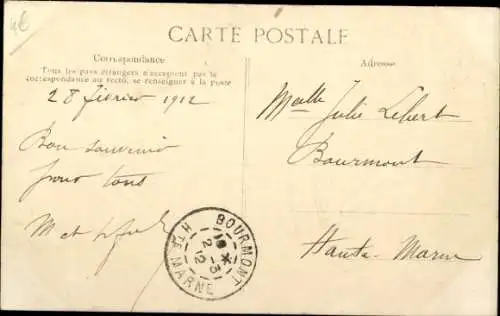 CARTE POSTALE
Correspondance
Tous les pays étrangers n'acceptent pas la
correspondance au recto, se renseigner à la poste
Adresse
28 février 1912
Bon souvenir
pour tous
M et
Melle Julie Lebert
Bourmont
Haute-Marne
BOURMONT
2-3
12
HTE MARNE